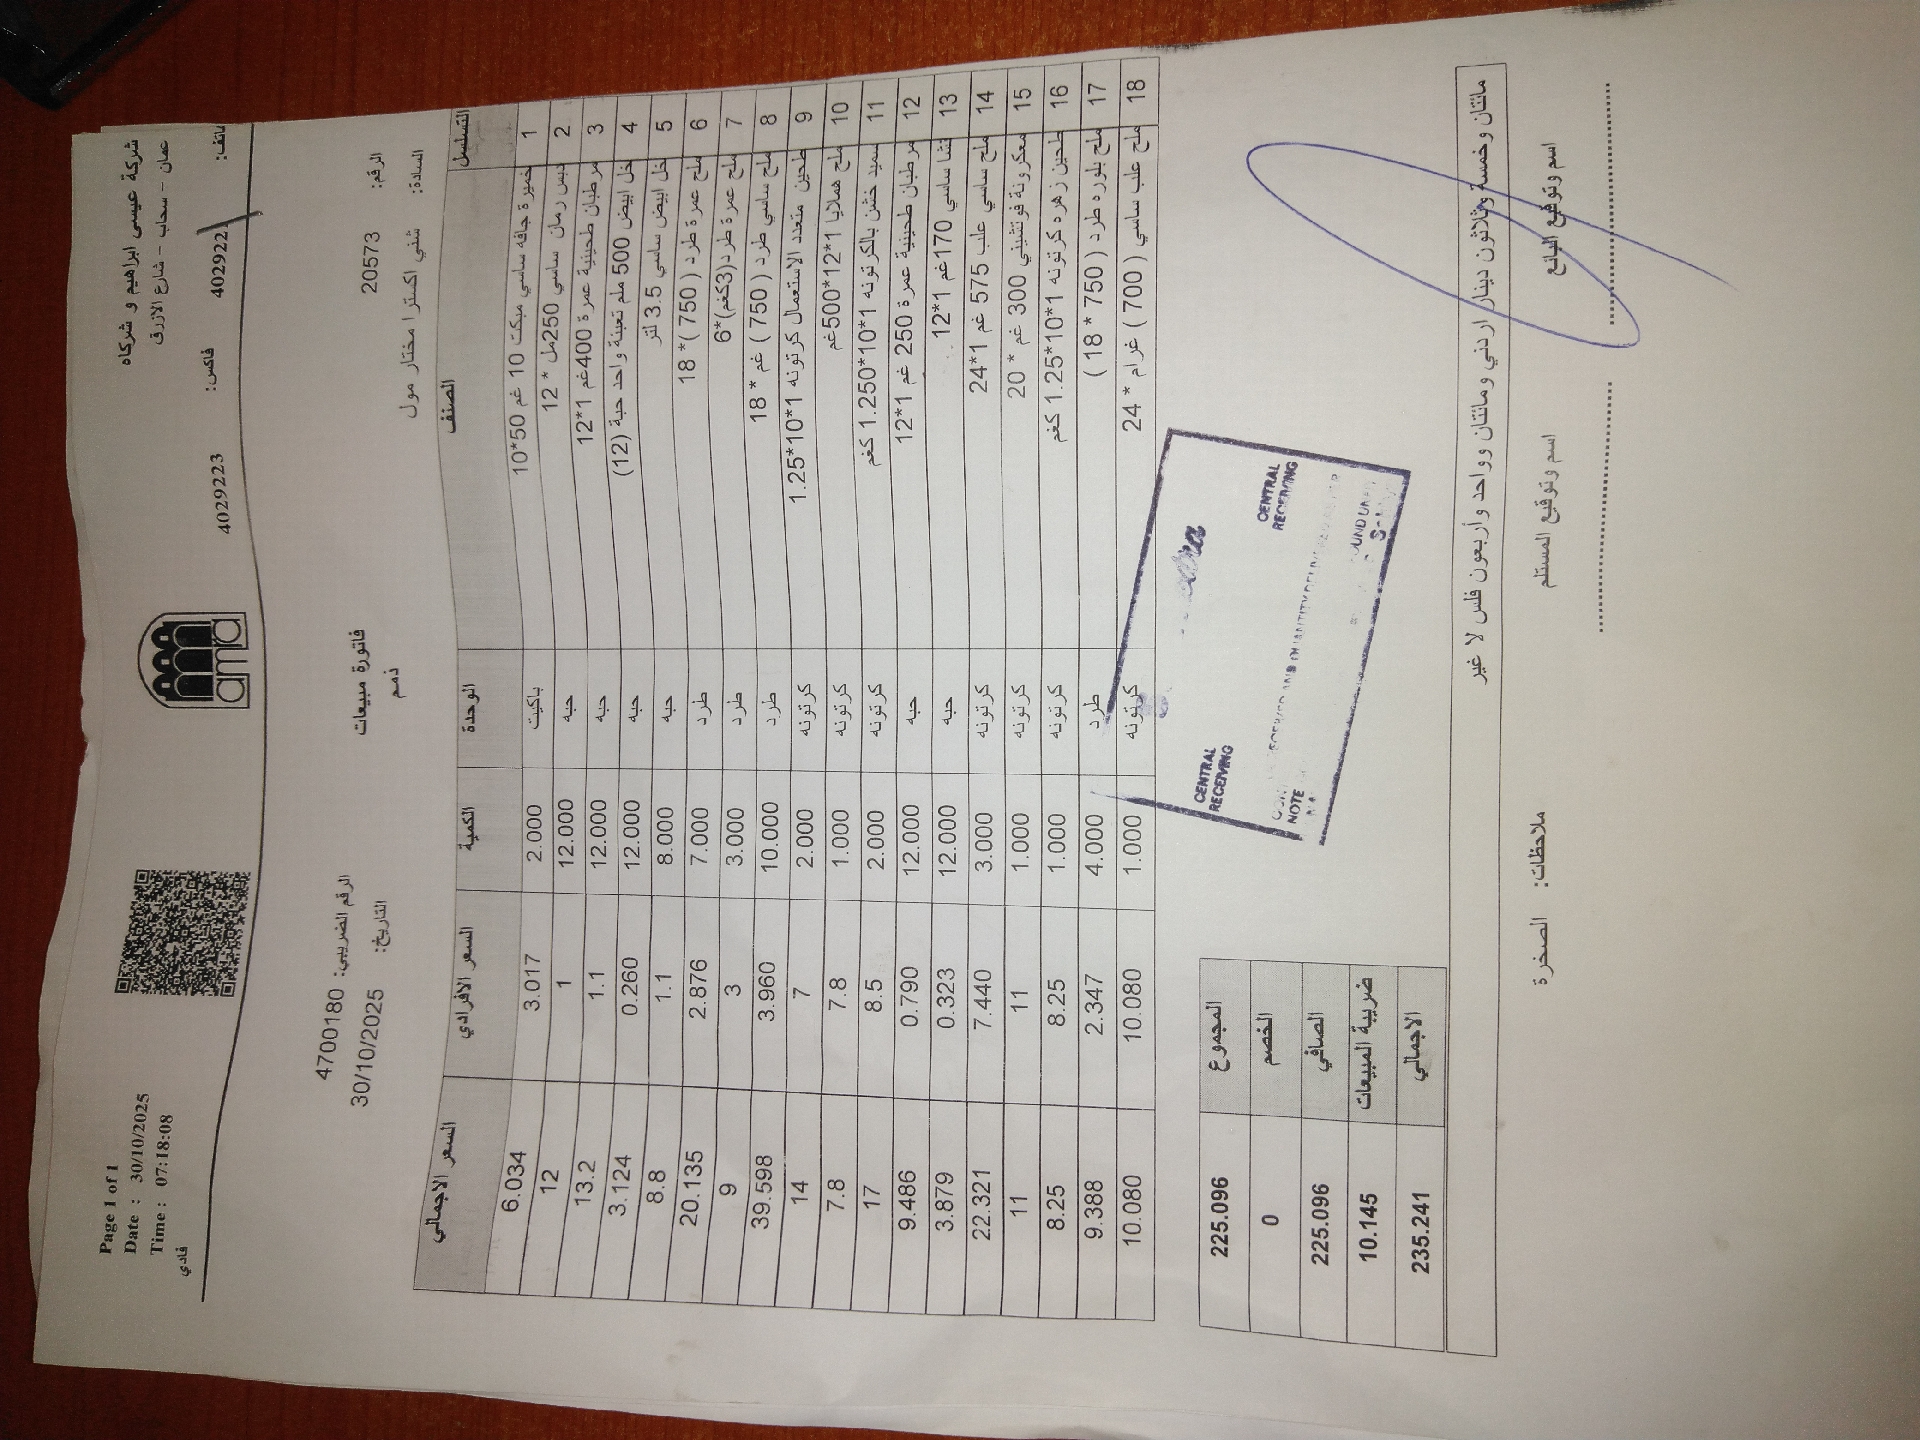 Page 1 of 1
Date : 30/10/2025
Time : 07:18:08
فادي
amra
شركة عيسى ابراهيم و شركاه
عمان - سحاب - شارع الازرق
هاتف: 4029222 فاكس: 4029223
الرقم الضريبي: 4700180 فاتورة مبيعات الرقم: 20573
التاريخ: 30/10/2025 ذمم السادة: شني اكسترا مختار مول
التسلسل الصنف الوحدة الكمية السعر الافرادي السعر الاجمالي
1 خميرة جافه ساسي مبكت 10 غم 50*10 باكيت 2.000 3.017 6.034
2 دبس رمان ساسي 250مل * 12 حبه 12.000 1 12
3 مرطبان طحينية عمرة 400غم 1*12 حبه 12.000 1.1 13.2
4 خل ابيض 500 ملم تعبئة واحد حبة (12) حبه 12.000 0.260 3.124
5 خل ابيض ساسي 3.5 لتر حبه 8.000 1.1 8.8
6 ملح عمرة طرد ( 750 )* 18 طرد 7.000 2.876 20.135
7 ملح عمرة طرد(3كغم)*6 طرد 3.000 3 9
8 ملح ساسي طرد ( 750 ) غم * 18 طرد 10.000 3.960 39.598
9 طحين متعدد الاستعمال كرتونه 1*10*1.25 كرتونه 2.000 7 14
10 ملح هملايا 1*12*500غم كرتونه 1.000 7.8 7.8
11 سميد خشن بالكرتونه 1*10*1.250 كغم كرتونه 2.000 8.5 17
12 مرطبان طحينية عمرة 250 غم 1*12 حبه 12.000 0.790 9.486
13 نشا ساسي 170غم 1*12 حبه 12.000 0.323 3.879
14 ملح ساسي علب 575 غم 1*24 كرتونه 3.000 7.440 22.321
15 معكرونة فوتشيني 300 غم * 20 كرتونه 1.000 11 11
16 طحين زهره كرتونه 1*10*1.25 كغم كرتونه 1.000 8.25 8.25
17 ملح بلوره طرد ( 750 * 18 ) طرد 4.000 2.347 9.388
18 ملح علب ساسي ( 700 ) غرام * 24 كرتونه 1.000 10.080 10.080
CENTRAL RECEIVING
CENTRAL RECEIVING
NOTE
المجموع 225.096
الخصم 0
الصافي 225.096
ضريبة المبيعات 10.145
الاجمالي 235.241
مائتان وخمسة وثلاثون دينار اردني ومائتان وواحد وأربعون فلس لا غير
اسم وتوقيع البائع اسم وتوقيع المستلم ملاحظات: الصخرة